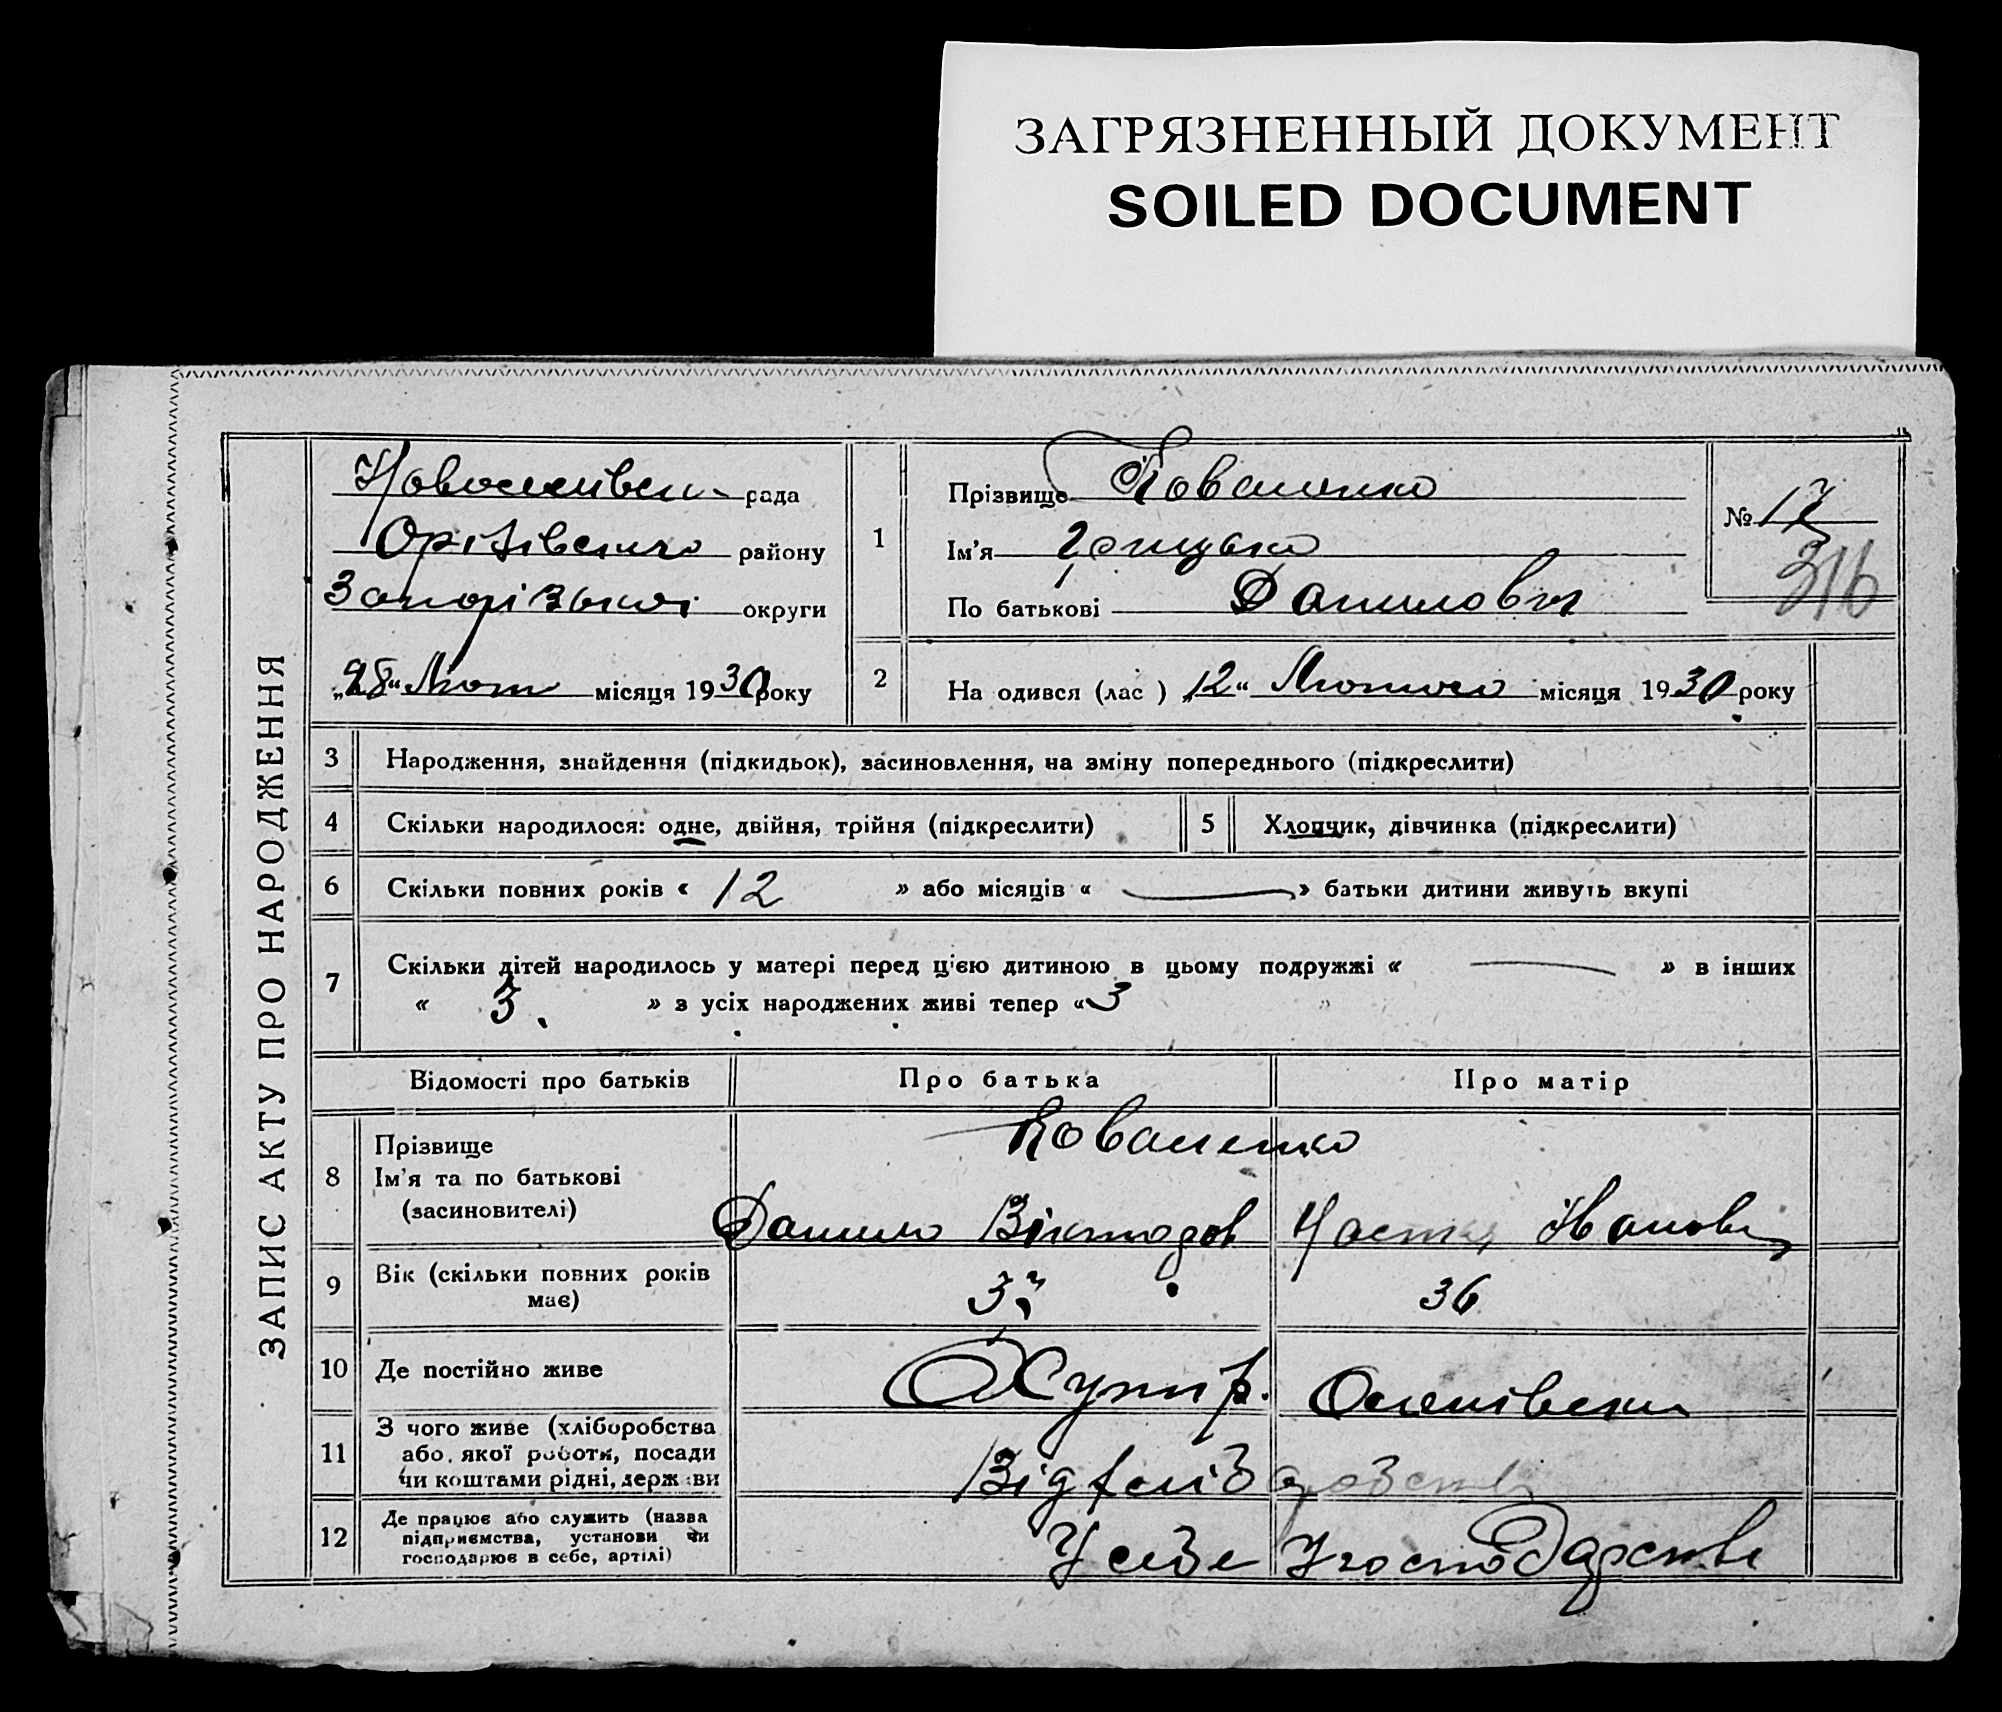 ЗАГРЯЗНЕННЫЙ ДОКУМЕНТ
SOILED DOCUMENT
ЗАПИС АКТУ ПРО НАРОДЖЕННЯ
рада
району
Запорізької округи
„28“ Лютого місяця 1930 року
1
Прізвище Коваленко
Ім'я Грицько
По батькові Данилович
№ 17
316
2
На одився (лас ) „12“ Лютого місяця 1930 року
3 Народження, знайдення (підкидьок), засиновлення, на зміну попереднього (підкреслити)
4 Скільки народилося: одне, двійня, трійня (підкреслити) 5 Хлопчик, дівчинка (підкреслити)
6 Скільки повних років « 12 » або місяців « — » батьки дитини живуть вкупі
7 Скільки дітей народилось у матері перед цією дитиною в цьому подружжі « — » в інших
« 3. » з усіх народжених живі тепер « 3 »
Відомості про батьків Про батька Про матір
8 Прізвище
Ім'я та по батькові
(засиновителі)
Коваленко
Данило Настя Іванов
9 Вік (скільки повних років
має)
36
10 Де постійно живе Хутір.
11 З чого живе (хліборобства
або якої роботи, посади
чи коштами рідні, держави
Від хліборобства
12 Де працює або служить (назва
підприємства, установи чи
господарює в себе, артілі)
У себе у господарстві